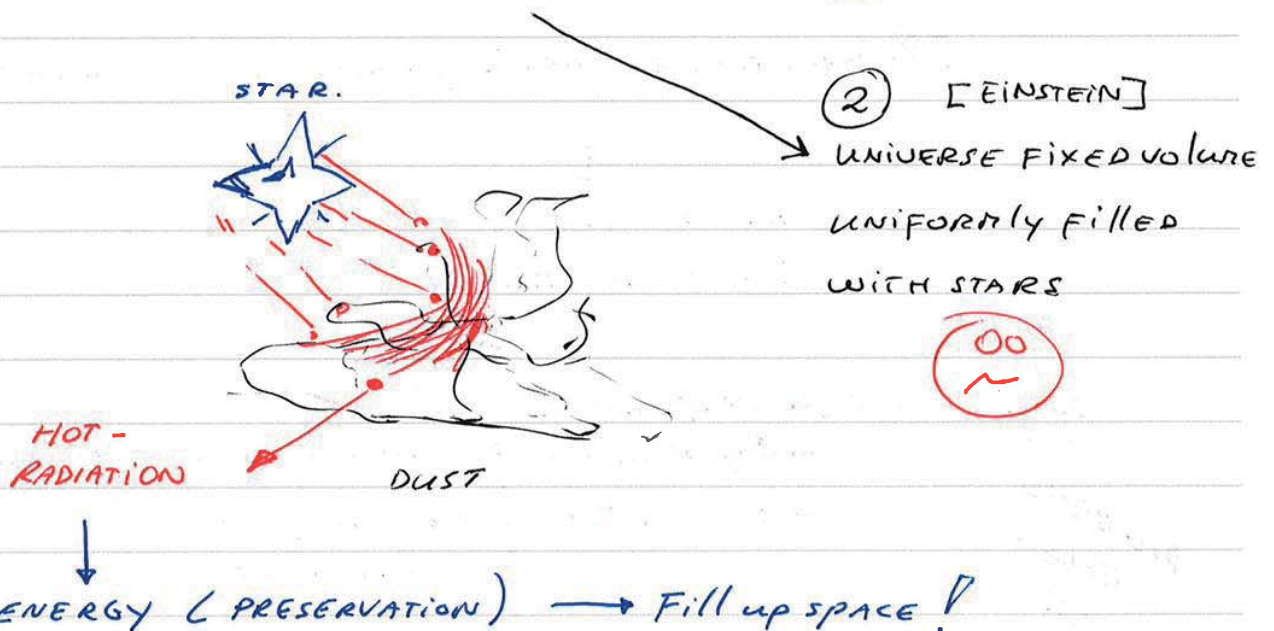 STAR.
② [EINSTEIN]
UNIVERSE FIXED VOLUME
UNIFORMLY FILLED
WITH STARS
HOT -
RADIATION
DUST
ENERGY (PRESERVATION) → Fill up SPACE!